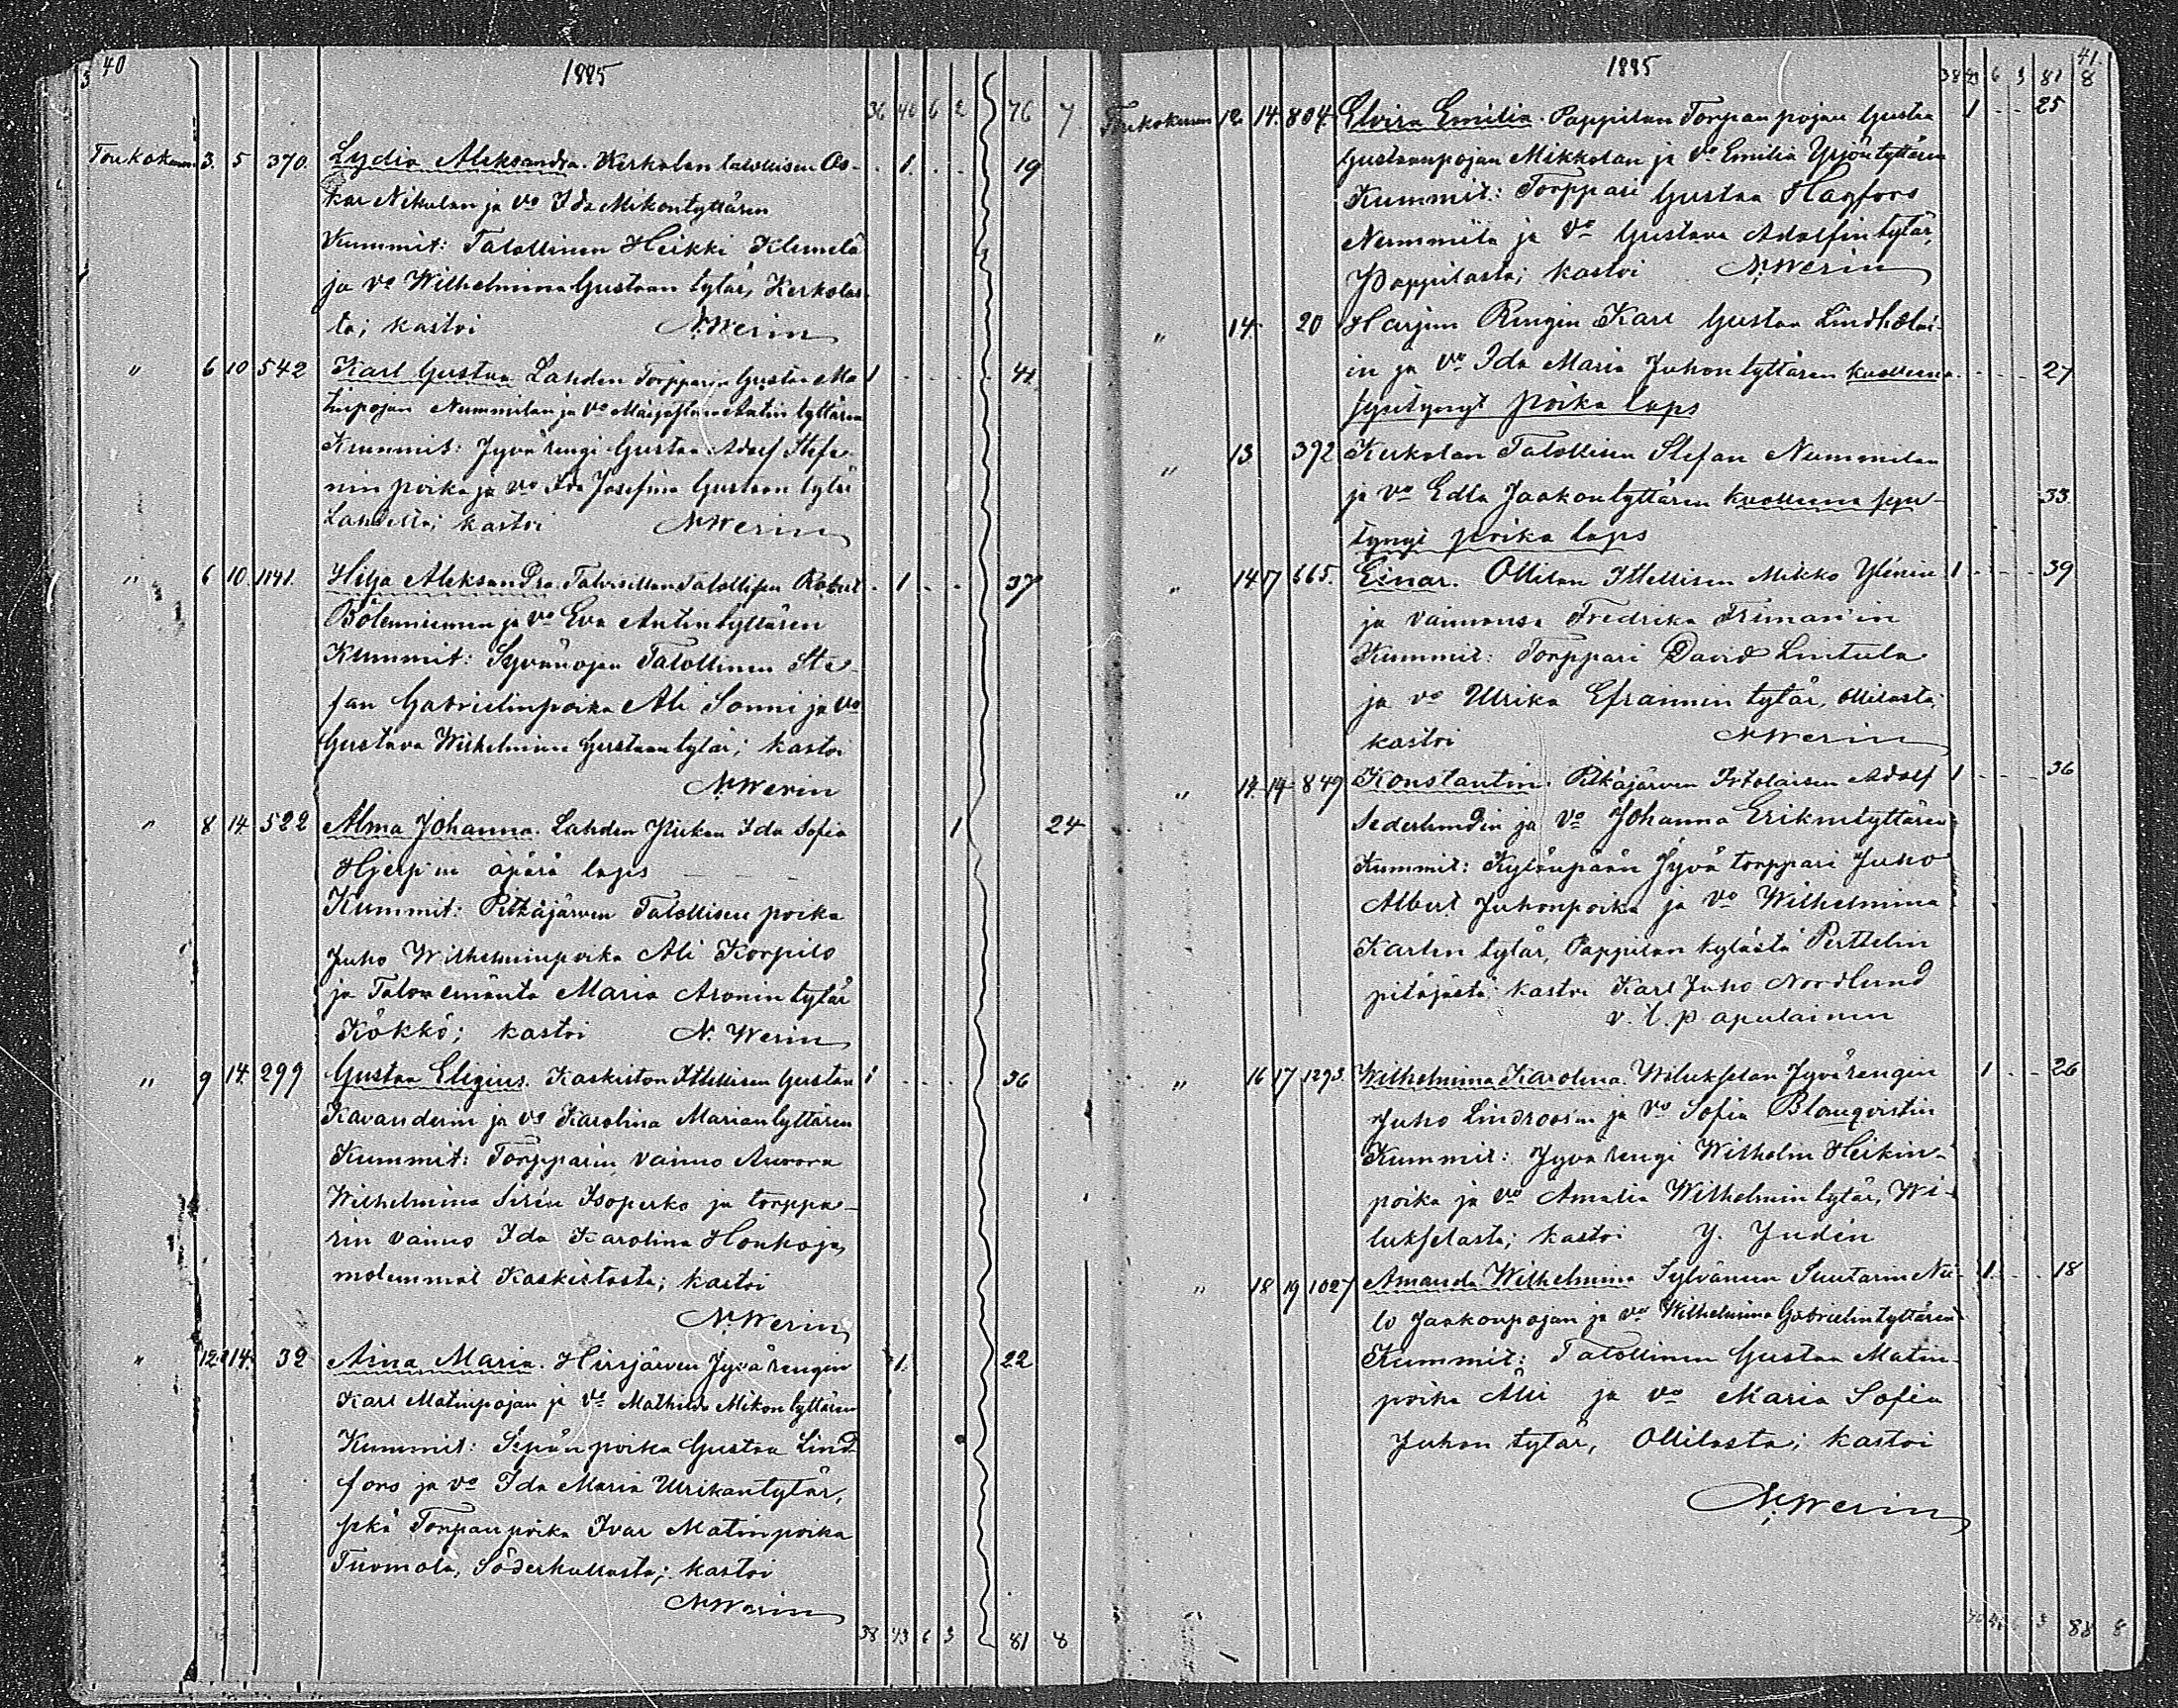 40
1885
36 40 6 2 76 7
Toukokuun 3. 5 370. Lydia Aleksandra. Kerkolan talollisen Os- 1. 19
kar Nikulan ja vo Ida Mikontyttären
Kummit: Talollinen Heikki Klemelä
ja vo Wilhelmina Gustaan tytär, Kerkolas-
ta; kastoi N. Werin
" 6 10 542 Karl Gustaa Lahden Torpparin Gustaa Ma 1 41
tinpojan Nummilan ja vo Maija Antin tyttären
Kummit: Jyvä rengi Gustaa Adolf Stefa-
nin poika ja vo Ida Josefina Gustaan tytär
Lahdesta; kastoi N. Werin
" 6 10 1141. Hilja Aleksandra. Talollisen Robert 1 37
ja vo Eva Antintyttären
Kummit: Syvänojan Talollinen Ste-
fan Gabrielinpoika Ali Sonni ja vo
Gustava Wilhelmina Gustaantytär; kastoi
N. Werin
" 8 14 522 Alma Johanna. Lahden Piikan Ida Sofia 1 24
Hjerp'in äpärä laps
Kummit: Pitkäjärven Talollisen poika
Juho Wilhelminpoika Ali Korpilo
ja Talon emäntä Maria Aronin tytär
Kökkö; kastoi N. Werin
" 9 14. 299 Gustaa Eligius. Kaskiston Itsellisen Gustaa 1 36
Kavanderin ja vo Karolina Mariantyttären
Kummit: Torpparin vaimo Aurora
Wilhelmina Sirén Isoperko ja torppa-
rin vaimo Ida Karolina Honkoja,
molemmat Kaskistosta; kastoi
N. Werin
" 12 14. 32 Aina Maria. Hirsjärven Jyvä rengin 1. 22
Karl Matinpojan ja vo Mathilda Mikontyttären
Kummit: Sepän poika Gustaa Lind-
fors ja vo Ida Maria Ulrikantytär,
Torpan poika Ivar Matinpoika
Tuomola, Söderkullasta; kastoi
N. Werin
38 43 6 3 81 8
41.
1885
38 43 6 3 81 8
Toukokuun 12 14. 804. Elvira Emilia. Pappilan Torpan pojan Gustaa 1 25
Gustaanpojan Mikkolan ja vo Emilia Yrjöntyttären
Kummit: Torppari Gustaa Hagfors
Nummila ja vo Gustava Adolfin tytär,
Pappilasta; kastoi N. Werin
" 14. 20 Harjun Rengin Karl Gustaa Lindholmi-
in ja vo Ida Maria Juhontyttären kuolleena 27
syntynyt poika laps
" 13 392 Kerkolan Talollisen Stefan Nummilan
ja vo Edla Jaakontyttären kuolleena syn- 33
tynyt poika laps
" 14 17 665. Einar. Ollilan Itsellisen Mikko Ylénin 1 39
ja vaimonsa Fredrika Friman'in
Kummit: Torppari David Lintula
ja vo Ulrika Efraimin tytär, Ollilasta;
kastoi N. Werin
" 14 14 849 Konstantin. Pitkäjärven Adolf 1 36
Sederlundin ja vo Johanna Erikintyttären
Kummit: Kylänpään Jyvä torppari Juho
Albert Juhonpoika ja vo Wilhelmina
Karlin tytär, Pappilan kylästä Perttelin
pitäjästä; kastoi Karl Juho Nordlund
v. t. p apulainen
" 16 17 1293. Wilhelmina Karolina. Wilukselan Jyvärengin 1 26
Juho Lindroosin ja vo Sofia Blomqvistin
Kummit: Jyvä rengi Wilhelm Heikin-
poika ja vo Amalia Wilhelmin tytär, Wi-
lukselasta; kastoi Y. Judén
" 18 19 1027 Amanda Wilhelmina Sylvänen Suutarin Nii- 1. 18
lo Jaakonpojan ja vo Wilhelmina Gabrielintyttären
Kummit: Talollinen Gustaa Matin-
poika Älli ja vo Maria Sofia
Juhon tytär, Ollilasta; kastoi
N. Werin
88 8